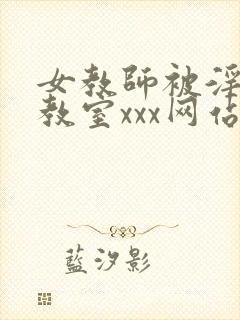 女教师被淫
教室xxx网站
蓝汐影